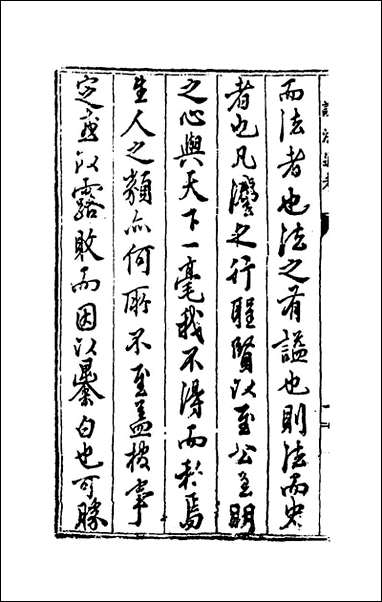 謚法通考
而法者也法之有謚也則法而史
者也凡灋之行聖賢以至公至明
之心與天下一毫我不得而私焉
生人之類亦何所不至蓋棺事
定以露敗而因以暴白也可勝